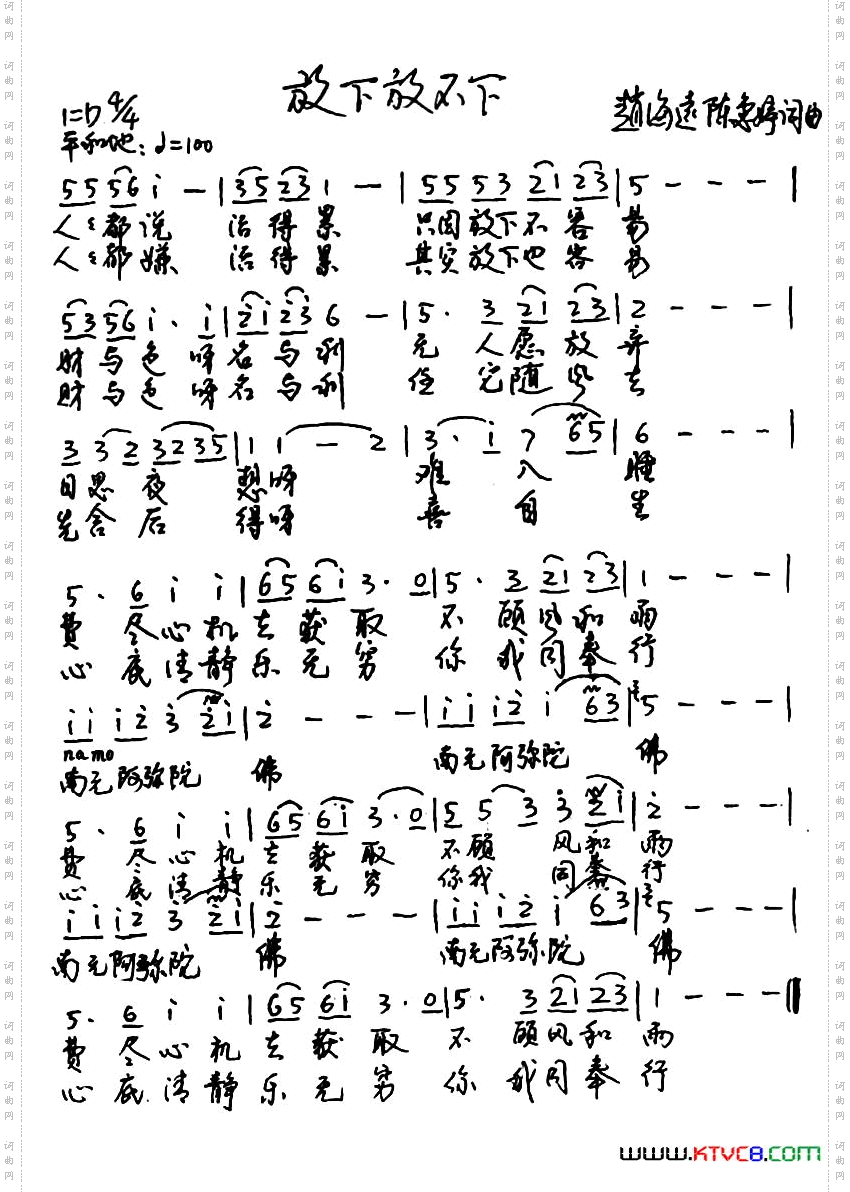 放下放不下
1=D 4/4
赵海远 陈惠婷词曲
平和地: ♩=100
5 5 5 6 i — | 3 5 2 3 1 — | 5 5 5 3 2 1 2 3 | 5 — — — |
人々都说 活得累 只因放下不容易
人々都嫌 活得累 其实放下也容易
5 3 5 6 i · i | 2 i 2 3 6 — | 5 · 3 2 1 2 3 | 2 — — — |
财与色呀名与利 无人愿放弃
财与色呀名与利 任它随风去
3 3 2 3 2 3 5 | 1 1 — 2 | 3 · i 7 6 5 | 6 — — — |
日思夜想呀 难入睡
先舍后得呀 喜自生
5 · 6 i i | 6 5 6 i 3 · 0 | 5 · 3 2 1 2 3 | 1 — — — |
费尽心机去获取 不顾风和雨
心底清静乐无穷 你我同奉行
i i i 2 3 2 i | 2 — — — | i i i 2 i 6 3 | 5 — — —
namo
南无阿弥陀佛 南无阿弥陀佛
5 · 6 i i | 6 5 6 i 3 · 0 | 5 5 3 3 2 i | 2 — — — |
费尽心机去获取 不顾风和雨
心底清静乐无穷 你我同奉行
i i i 2 3 2 i | 2 — — — | i i i 2 i 6 3 | 5 — — — |
南无阿弥陀佛 南无阿弥陀佛
5 · 6 i i | 6 5 6 i 3 · 0 | 5 · 3 2 1 2 3 | 1 — — — ‖
费尽心机去获取 不顾风和雨
心底清静乐无穷 你我同奉行
www.KTVC8.com
词曲网